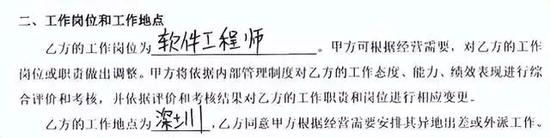 二、工作岗位和工作地点
乙方的工作岗位为软件工程师。甲方可根据经营需要，对乙方的工作
岗位或职责做出调整。甲方将依据内部管理制度对乙方的工作态度、能力、绩效表现进行综
合评价和考核，并依据评价和考核结果对乙方的工作职责和岗位进行相应变更。
乙方的工作地点为深圳，乙方同意甲方根据经营需要安排其异地出差或外派工作。